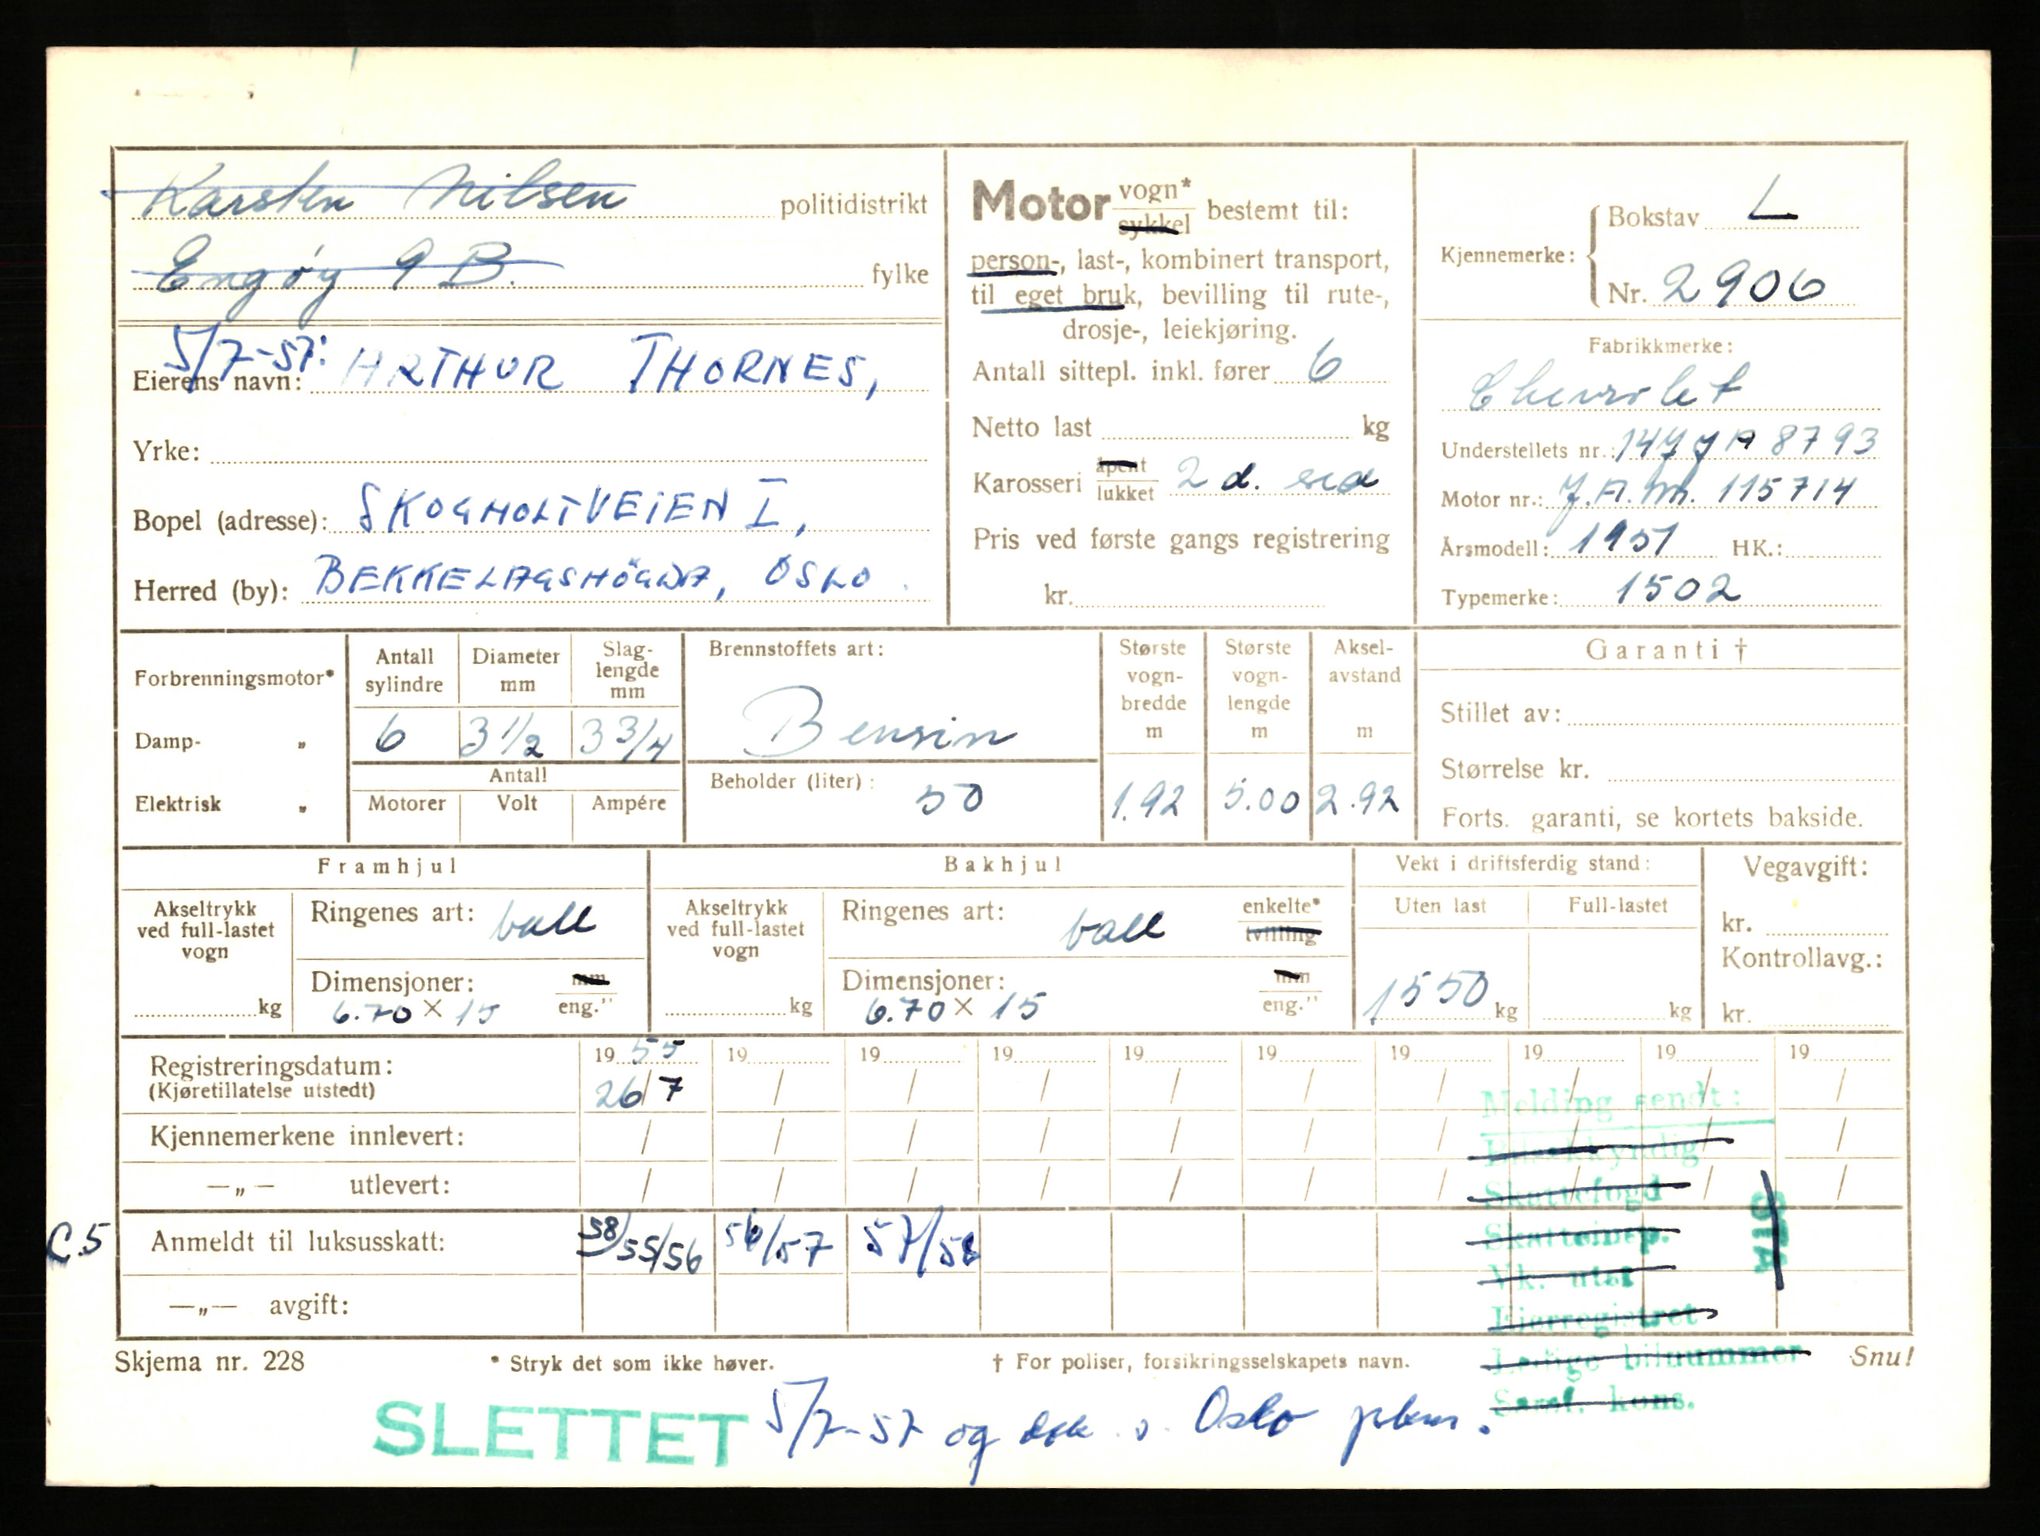 Karsten Nilsen politidistrikt
Engøy 9 B. fylke
5/7-57:
Eierens navn: ARTHUR THORNES,
Yrke:
Bopel (adresse): SKOGHOLTVEIEN I,
Herred (by): BEKKELAGSHÖGDA, OSLO.
Motor vogn* sykkel bestemt til:
person-, last-, kombinert transport,
til eget bruk, bevilling til rute-,
drosje-, leiekjøring.
Antall sittepl. inkl. fører 6
Netto last kg
Karosseri åpent lukket 2 d. sed
Pris ved første gangs registrering
kr.
Kjennemerke:
Bokstav L
Nr. 2906
Fabrikkmerke:
Chevrolet
Understellets nr.: 14JJA8793
Motor nr.: J.A.M. 115714
Årsmodell: 1951 HK.:
Typemerke: 1502
Forbrenningsmotor*
Damp- „
Elektrisk „
Antall sylindre
Diameter mm
Slag-lengde mm
6 3 1/2 3 3/4
Antall
Motorer Volt Ampére
Brennstoffets art:
Bensin
Beholder (liter): 50
Største vogn-bredde m
Største vogn-lengde m
Aksel-avstand m
1.92 5.00 2.92
Garanti †
Stillet av:
Størrelse kr.
Forts. garanti, se kortets bakside.
Framhjul
Akseltrykk
ved full-lastet
vogn
kg
Ringenes art: ball
Dimensjoner: mm eng."
6.70 × 15
Bakhjul
Akseltrykk
ved full-lastet
vogn
kg
Ringenes art: ball enkelte* tvilling
Dimensjoner: mm eng."
6.70 × 15
Vekt i driftsferdig stand:
Uten last Full-lastet
1550 kg kg
Vegavgift:
kr.
Kontrollavg.:
kr.
Registreringsdatum: 19 55 19 19 19 19 19 19 19 19 19
(Kjøretillatelse utstedt) 26/7 / / / / / / / / /
Kjennemerkene innlevert: / / / / / / / / / /
—„— utlevert: / / / / / / / / / /
C.5 Anmeldt til luksusskatt: 58/55/56 56/57 57/58
—„— avgift:
Melding sendt:
Bilsakkyndig
Skattefogd
Skatteinsp.
Vk. utst
Eierregistret
Ledige bilnummer
Saml. kons.
STA
Skjema nr. 228 * Stryk det som ikke høver. † For poliser, forsikringsselskapets navn. Snu!
SLETTET 5/7-57 og Oslo